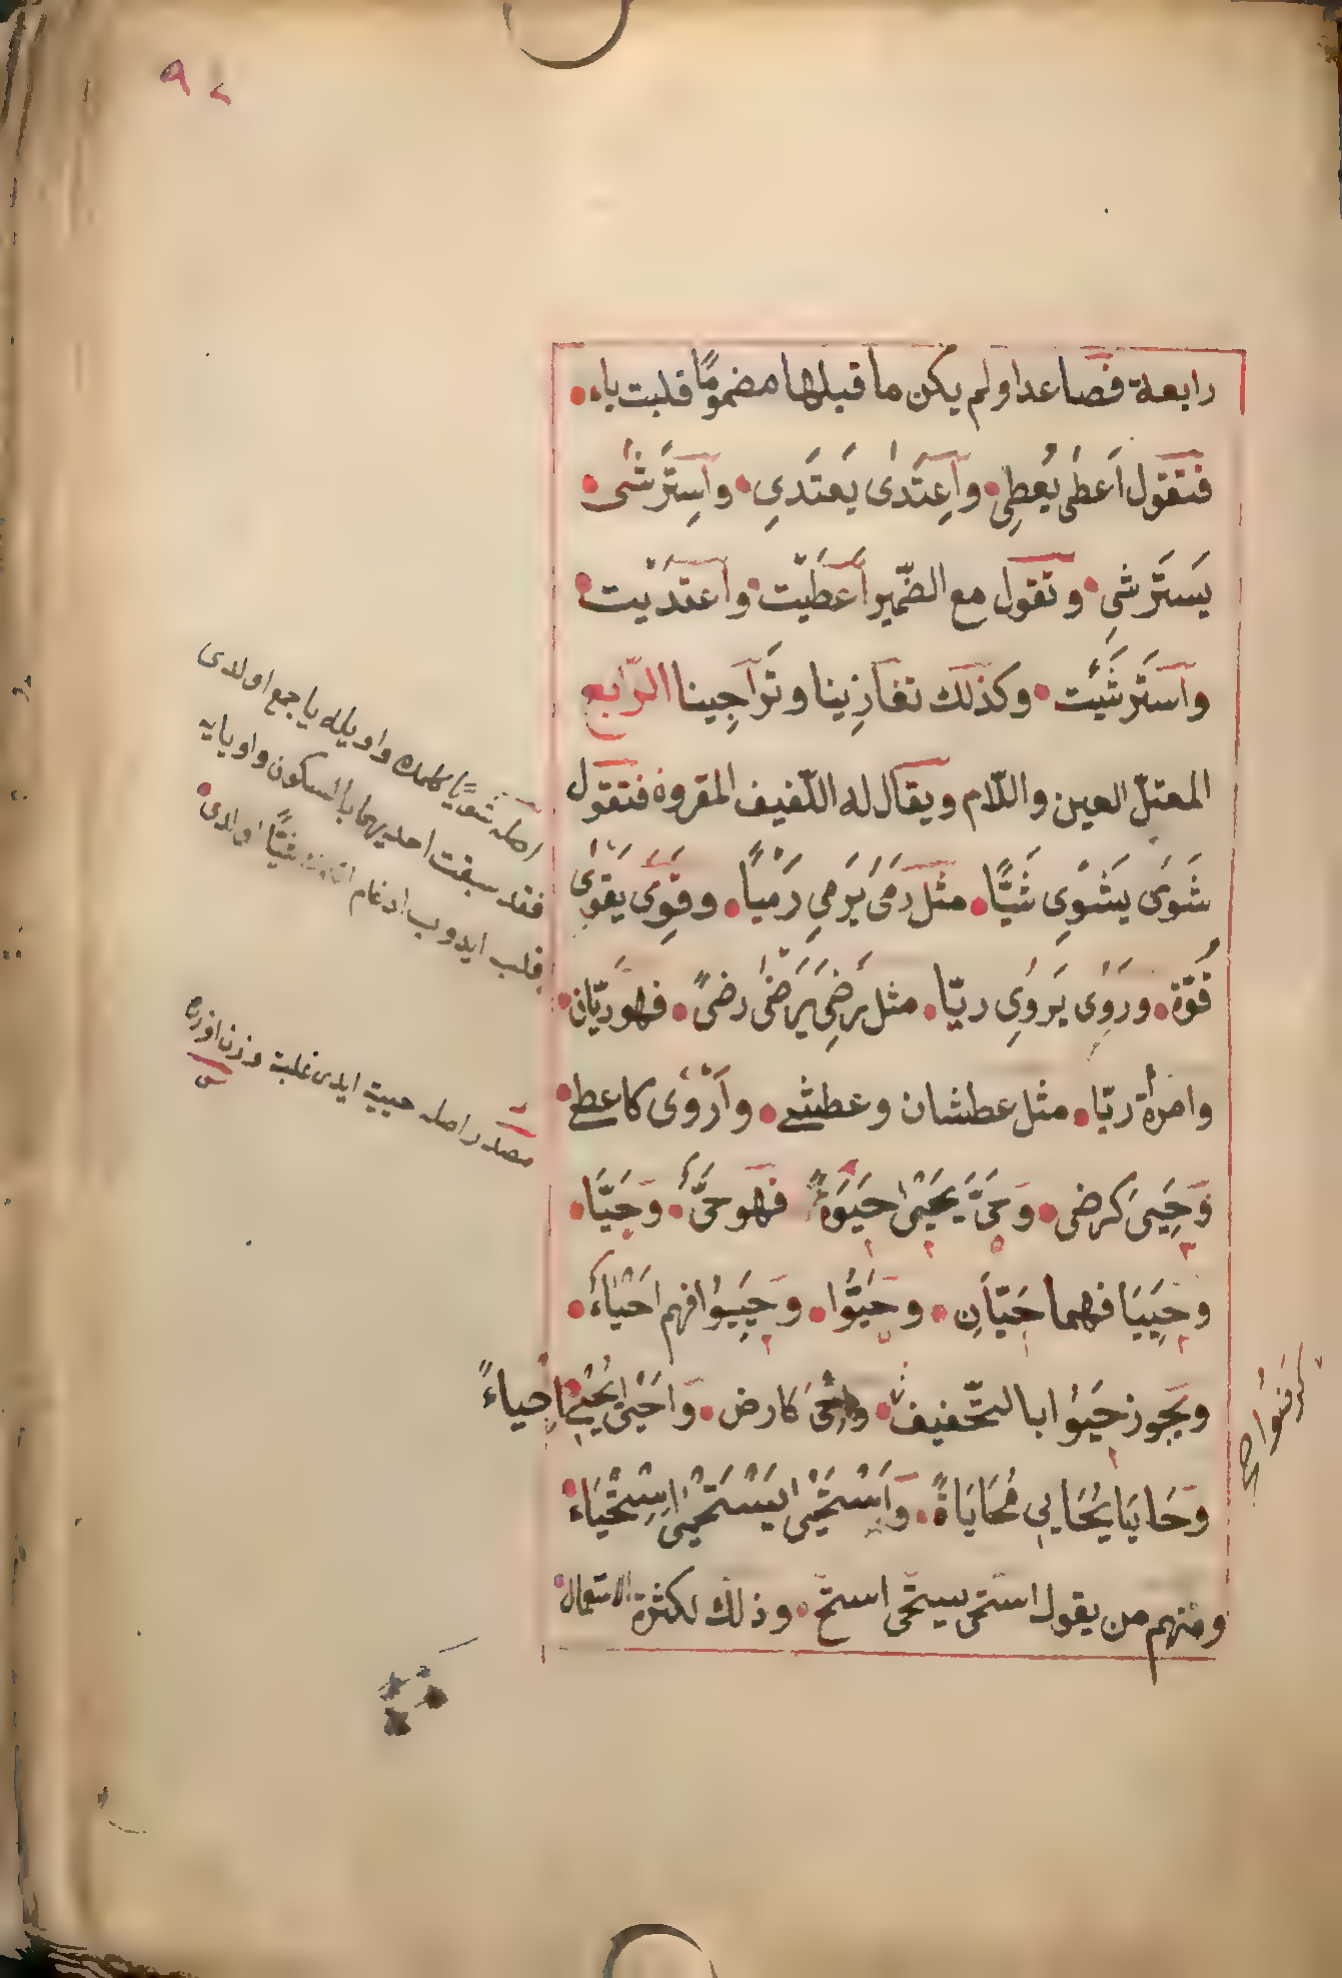 رابعة فصاعدا ولم يكن ما قبلها مضموما قلبت ياء
فتقول اَعطى يُعطِى واِعتَدى يَعتَدِي واِستَرشى
يَستَرشِى وتقول مع الضّمير اَعطَيْت واعتَدَيْت
واسترشَيْت وكذلك تغازينا وتَراجَينا الرّابع
المعتلّ العين واللّام ويقال له اللّفيف المقرون فتقول
شَوَى يَشْوِى شَيًّا مثل رَمَى يَرمِي رَمْيًا وقَوِىَ يقوَى
قُوّة ورَوِى يَروَى ريّا مثل رَضِىَ يَرضَى رضىً فهو ريّان
وامرأة ريّا مثل عطشان وعطشى وأروَى كاعطى
وَحَيِىَ كرضى وَحَىَّ يَحْيَى حَيَوةً فهو حَىٌّ وَحَيَّا
وحَيِيَا فهما حَيّانِ وحَيُّوا وحَيِيُوا فهم احْيَاءٌ
ويجوز حَيُوا بالتخفيف كرضوا وَاَحْيَى يُحْيِى اِحياءً
وَحَايَا يُحَايِي مُحَايَاةً وَاسْتَحْيَى يَسْتَحْيِى اِسْتِحْيَاءً
ومنهم من يقول استحى يستحى استح وذلك لكثرة الاستعمال
اصله شويًا كلمه واو يله يا جمع اولدى
فقد سبقت احديهما بالسكون واو يايه
قلب ايدوب ادغام شيًّا اولدى
مصدر اصله حييت ايدى غلبة وزن اوزره